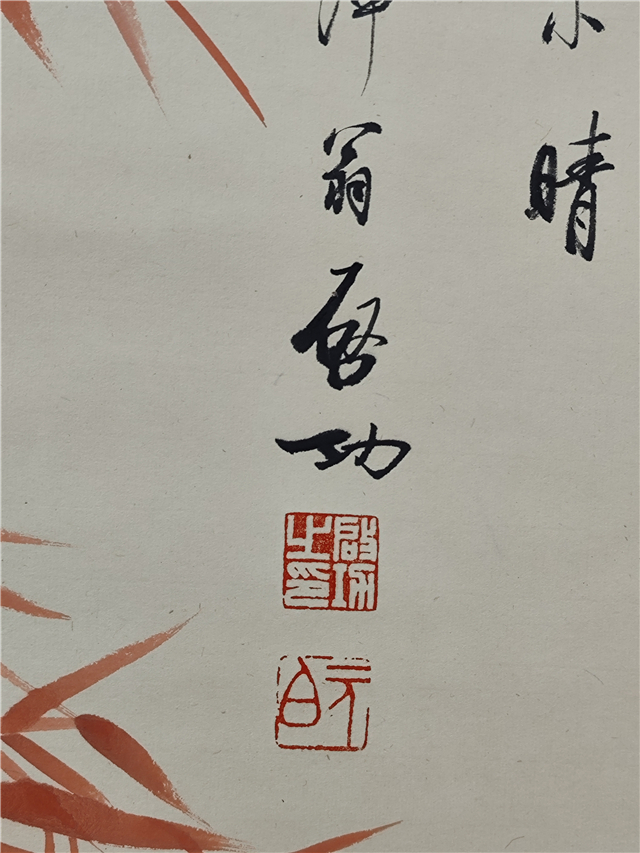 晴
翁啓功
啟功之印
元白